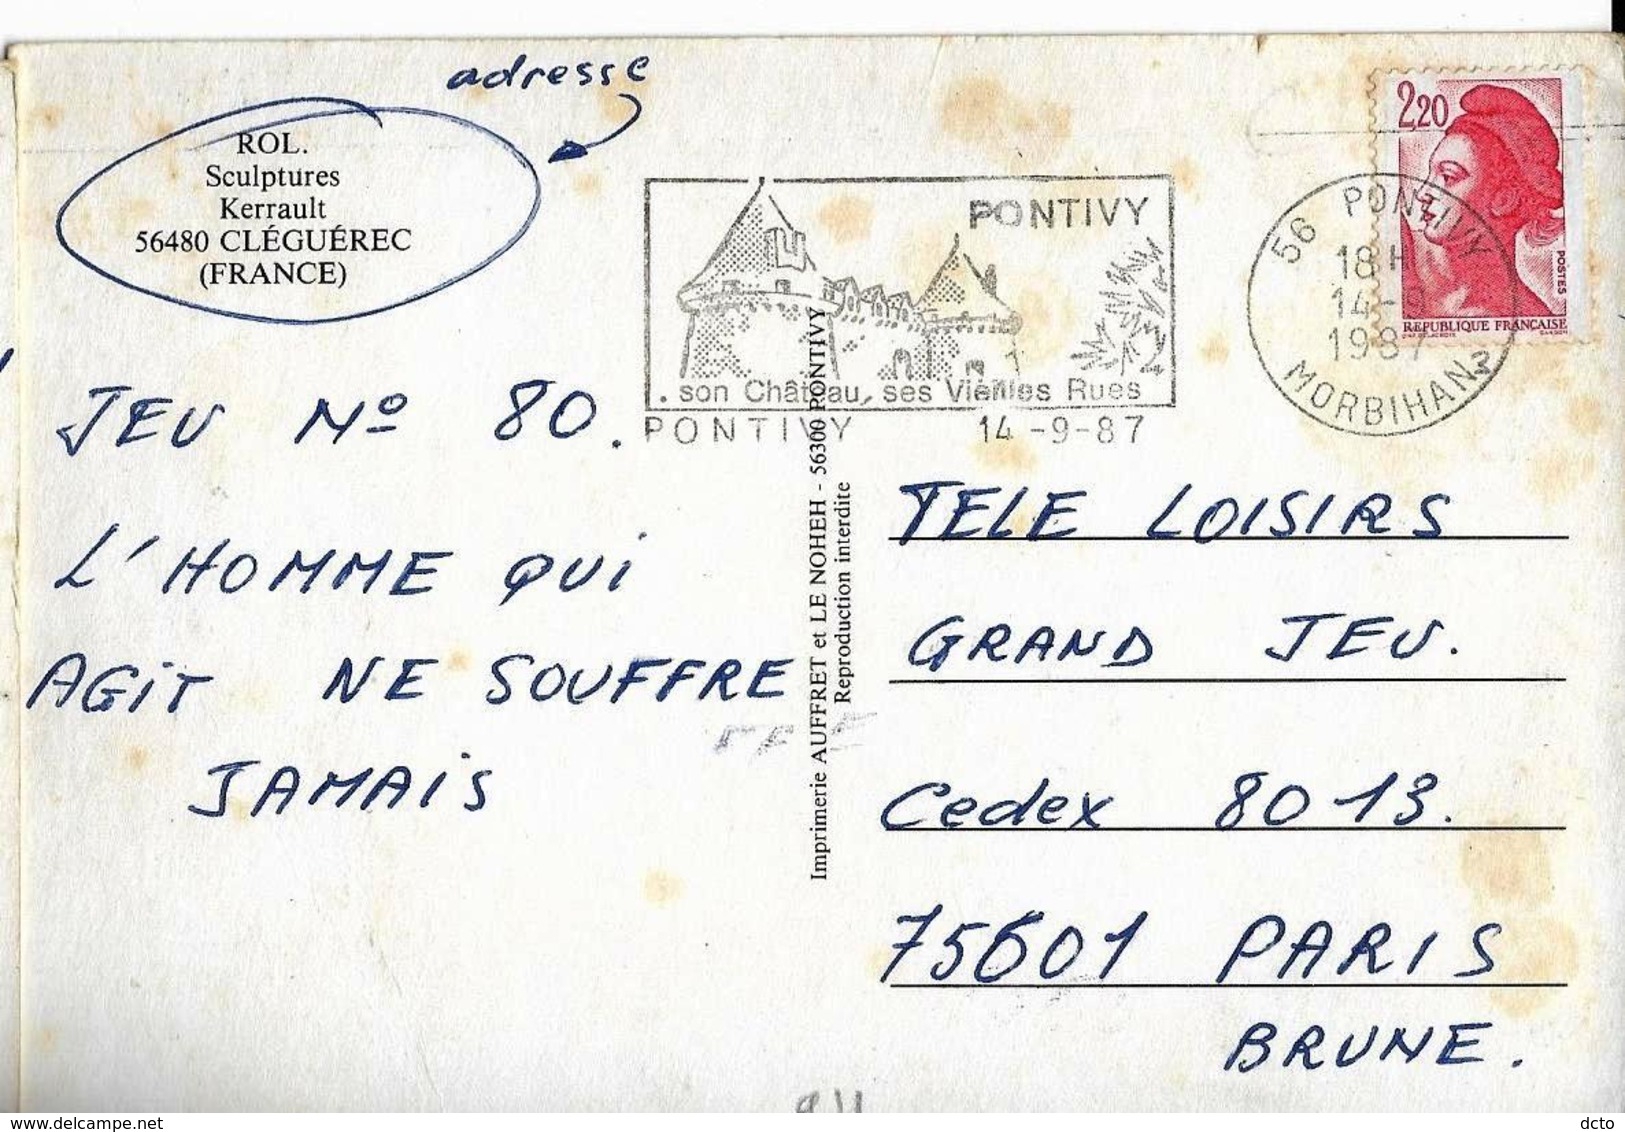 adresse
ROL.
Sculptures
Kerrault
56480 CLÉGUÉREC
(FRANCE)
JEU Nº 80.
L'HOMME QUI
AGIT NE SOUFFRE
JAMAIS
PONTIVY
. son Château, ses Vieilles Rues
PONTIVY 14-9-87
56 PONTIVY
18H
14-9
1987
MORBIHAN
2,20
POSTES
REPUBLIQUE FRANÇAISE
Imprimerie AUFFRET et LE NOHEH - 56300 PONTIVY
Reproduction interdite
TELE LOISIRS
GRAND JEU.
Cedex 8013.
75601 PARIS
BRUNE.
dcto